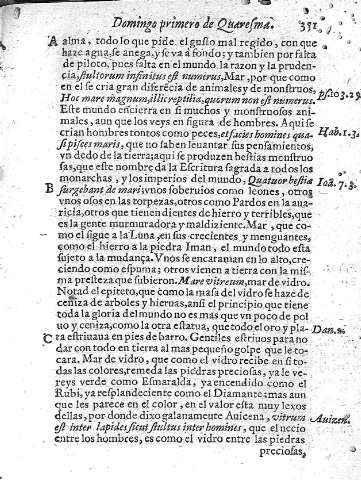 Domingo primero de Quaresma. 351
A alma, todo lo que pide el gusto mal regido, con que
haze agua, se anega, y se va a fondo; y tambien por falta
de piloto, pues falta en el mundo la razon y la pruden-
cia, stultorum infinitus est numerus, Mar, por que como
en el se cria gran diferēcia de animales y de monstruos,
Hoc mare magnum, illic reptilia, quorum non est numerus.
ps. 103. 29.
Este mundo encierra en si muchos y monstruosos ani-
males, aun que los veys en figura de hombres. Aqui se
crian hombres tontos como peces, et facies homines qua-
Hab. 1. 3.
si pisces maris, que no saben leuantar sus pensamientos,
vn dedo de la tierra; aqui se produzen bestias monstruo
sas, que este nombre da la Escritura sagrada a todos los
monarchas, y los imperios del mundo, Quatuor bestiæ
B surgebant de mari: vnos soberuios como leones, otros
7. 3.
vnos osos en las torpezas, otros como Pardos en la aua-
ricia, otros que tienen dientes de hierro y terribles, que
es la gente murmuradora y maldiziente. Mar, que co-
mo el sigue a la Luna, en sus crecientes y menguantes,
como el hierro a la piedra Iman, el mundo todo esta
sujeto a la mudança. Vnos se encaraman en lo alto, cre-
ciendo como espuma; otros vienen a tierra con la mis-
ma presteza que subieron. Mare vitreum, mar de vidro.
Notad el epiteto, que como la masa del vidro se haze de
ceniza de arboles y hieruas, ansi el principio que tiene
toda la gloria del mundo no es mas que vn poco de pol
uo y ceniza, como la otra estatua, que todo el oro y pla-
Dan. 2.
C ta estriuaua en pies de barro. Gentiles estriuos para no
dar con todo en tierra al mas pequeño golpe que le to-
cara. Mar de vidro, que como el vidro recibe en si to-
das las colores, remeda las piedras preciosas, ya le ve-
reys verde como Esmeralda, ya encendido como el
Rubi, ya resplandeciente como el Diamante: mas aun
que les parece en el color, en el valor esta muy lexos
dellas, por donde dixo galanamente Auicena, vitrum
Auizen.
est inter lapides sicut stultus inter homines, que el necio
entre los hombres, es como el vidro entre las piedras
preciosas,